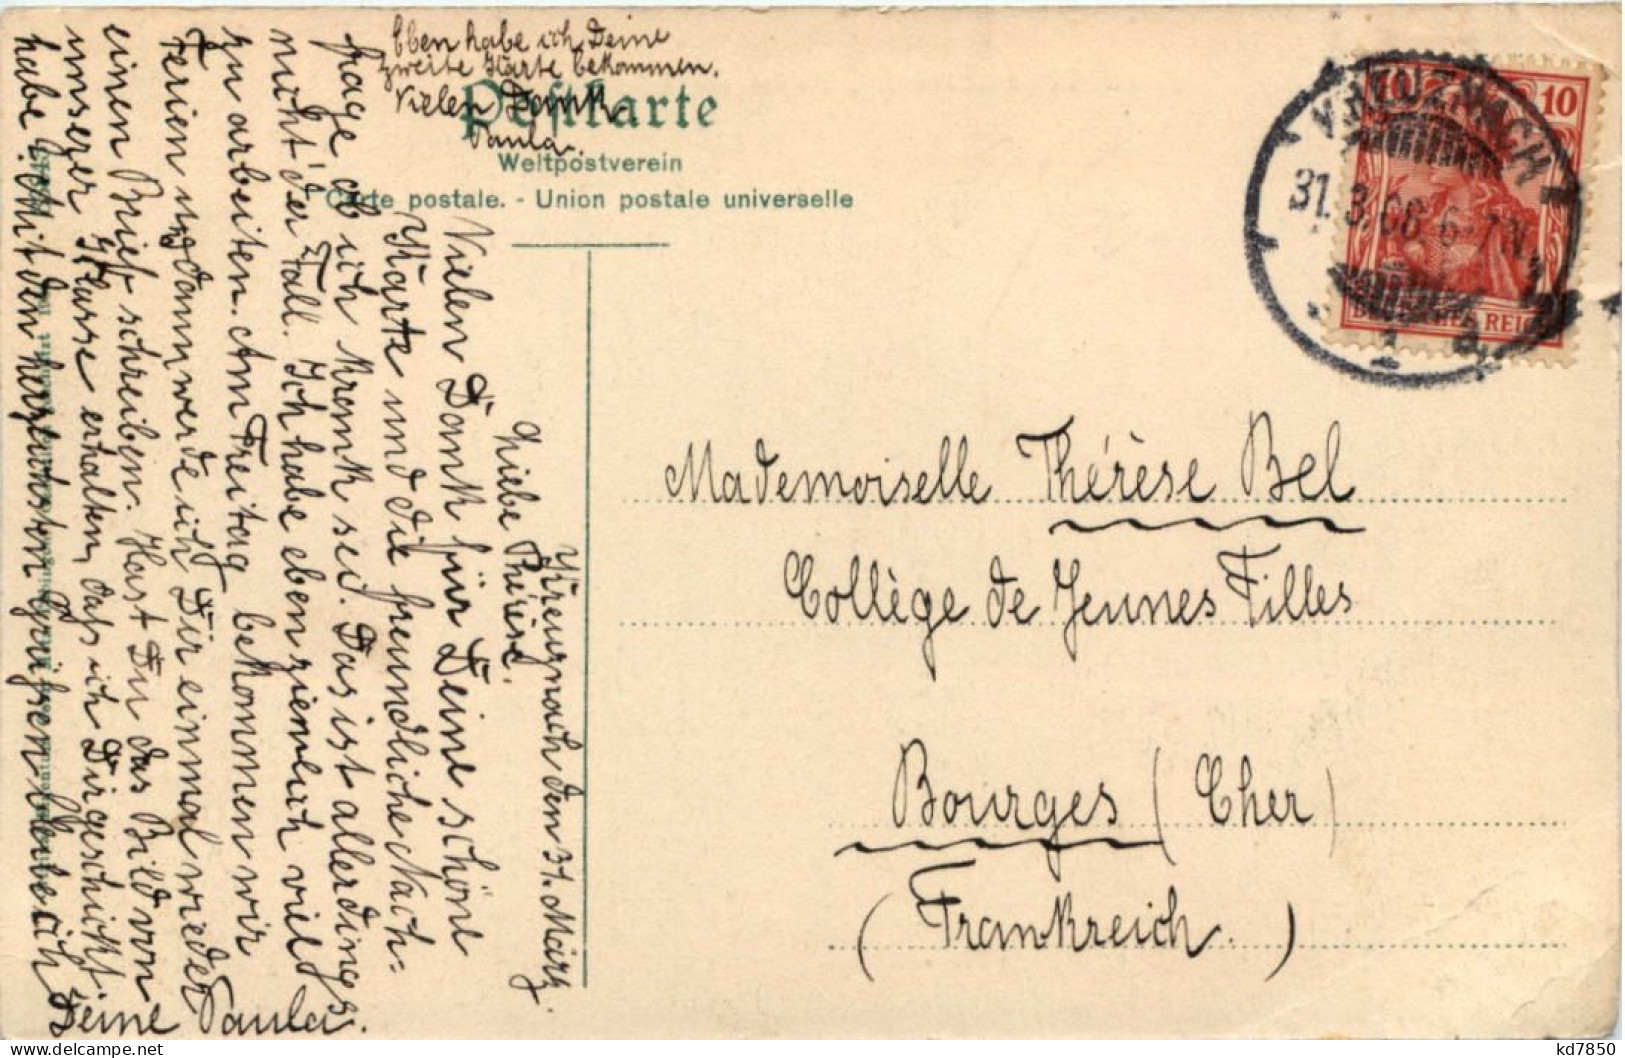 Eben habe ich Deine
zweite Karte bekommen.
Vielen Dank.
Paula.
Postkarte
Weltpostverein
Carte postale. - Union postale universelle
Kreuznach den 31. März.
Liebe Thérèse.
Vielen Dank für Deine schöne
Karte und die freundliche Nach-
frage ob ich krank sei. Das ist allerdings
nicht der Fall. Ich habe eben ziemlich viel
zu arbeiten. Am Freitag bekommen wir
Ferien und dann werde ich Dir einmal wieder
einen Brief schreiben. Hast Du das Bild von
unserer Klasse erhalten, dass ich Dir geschickt
habe? Mit den herzlichsten Grüssen bleibe ich
Deine Paula.
KREUZNACH
31.3.08 6-7N.
1 a.
10 10
DEUTSCHES REICH
Mademoiselle Thérèse Bel
Collège de Jeunes Filles
Bourges (Cher)
(Frankreich.)
kd7850